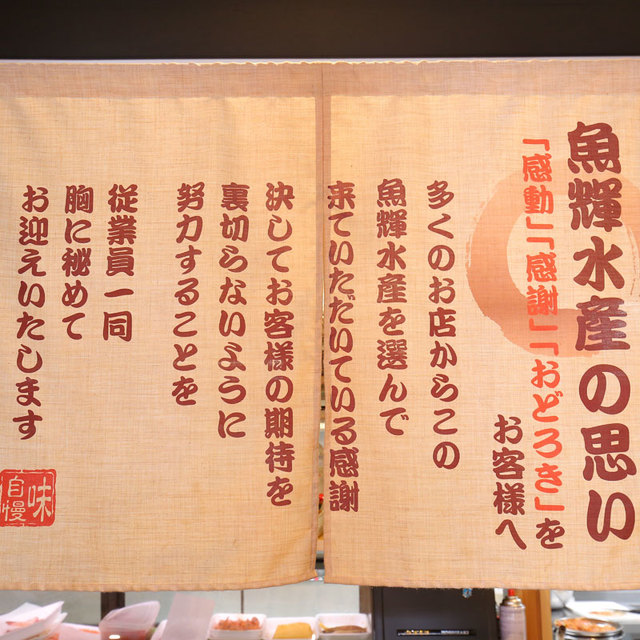 魚輝水産の思い
「感動」「感謝」「おどろき」を
お客様へ
多くのお店からこの
魚輝水産を選んで
来ていただいている感謝
決してお客様の期待を
裏切らないように
努力することを
従業員一同
胸に秘めて
お迎えいたします
味
自慢